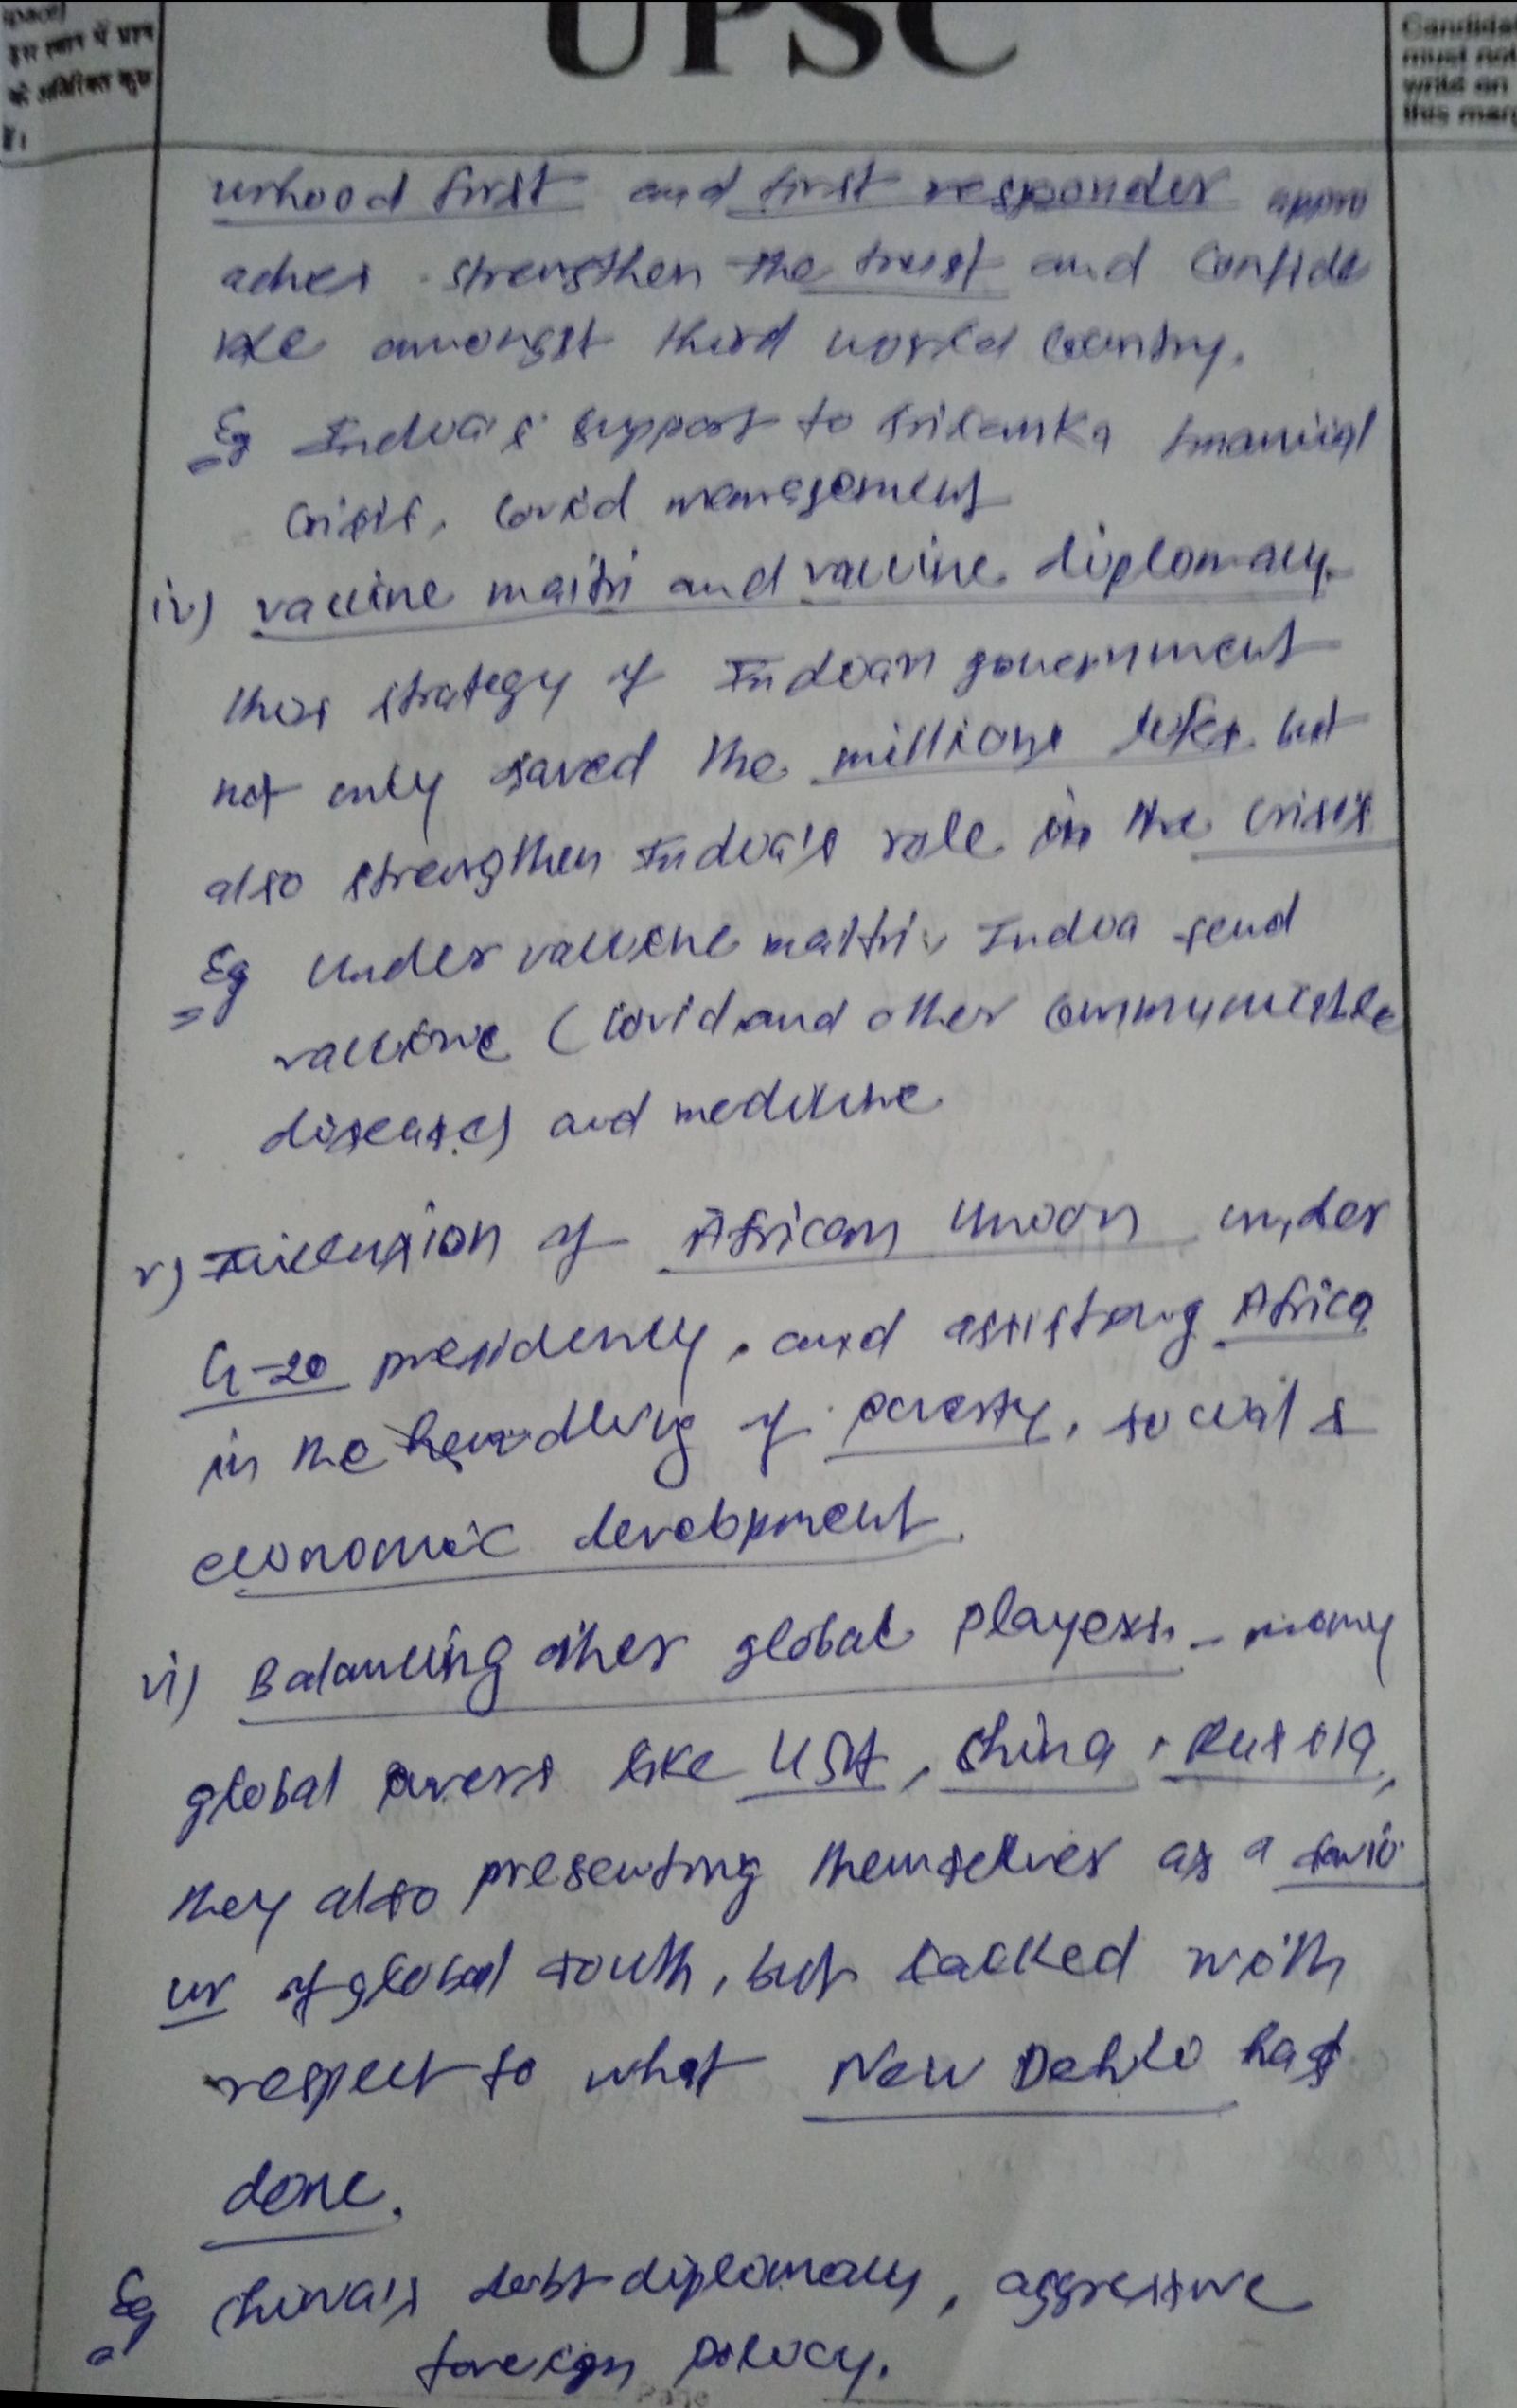 space)
इस स्थान में प्रश्न
के अतिरिक्त कुछ
UPSC
Candidat
must not
write on
this marg
urhood first and first responder appro
aches strengthen the trust and confide
nce amongst third world country.
Eg India's support to Srilanka financial
crisis, covid management
iv) vaccine maitri and vaccine diplomacy-
this strategy of Indian government
not only saved the millions lifes but
also strengthen India's role in the crisis
Eg Under vaccine maitri, India send
vaccine (covid and other communicable
diseases) and medicine
v) Inclusion of African Union under
G-20 presidency, and assisting Africa
in the handling of poverty, social &
economic development.
vi) Balancing other global players - many
global powers like USA, China, Russia,
they also presenting themselves as a savio
ur of global south, but lacked with
respect to what New Dehli has
done.
Eg China's debt diplomacy, aggressive
foreign policy.
Page